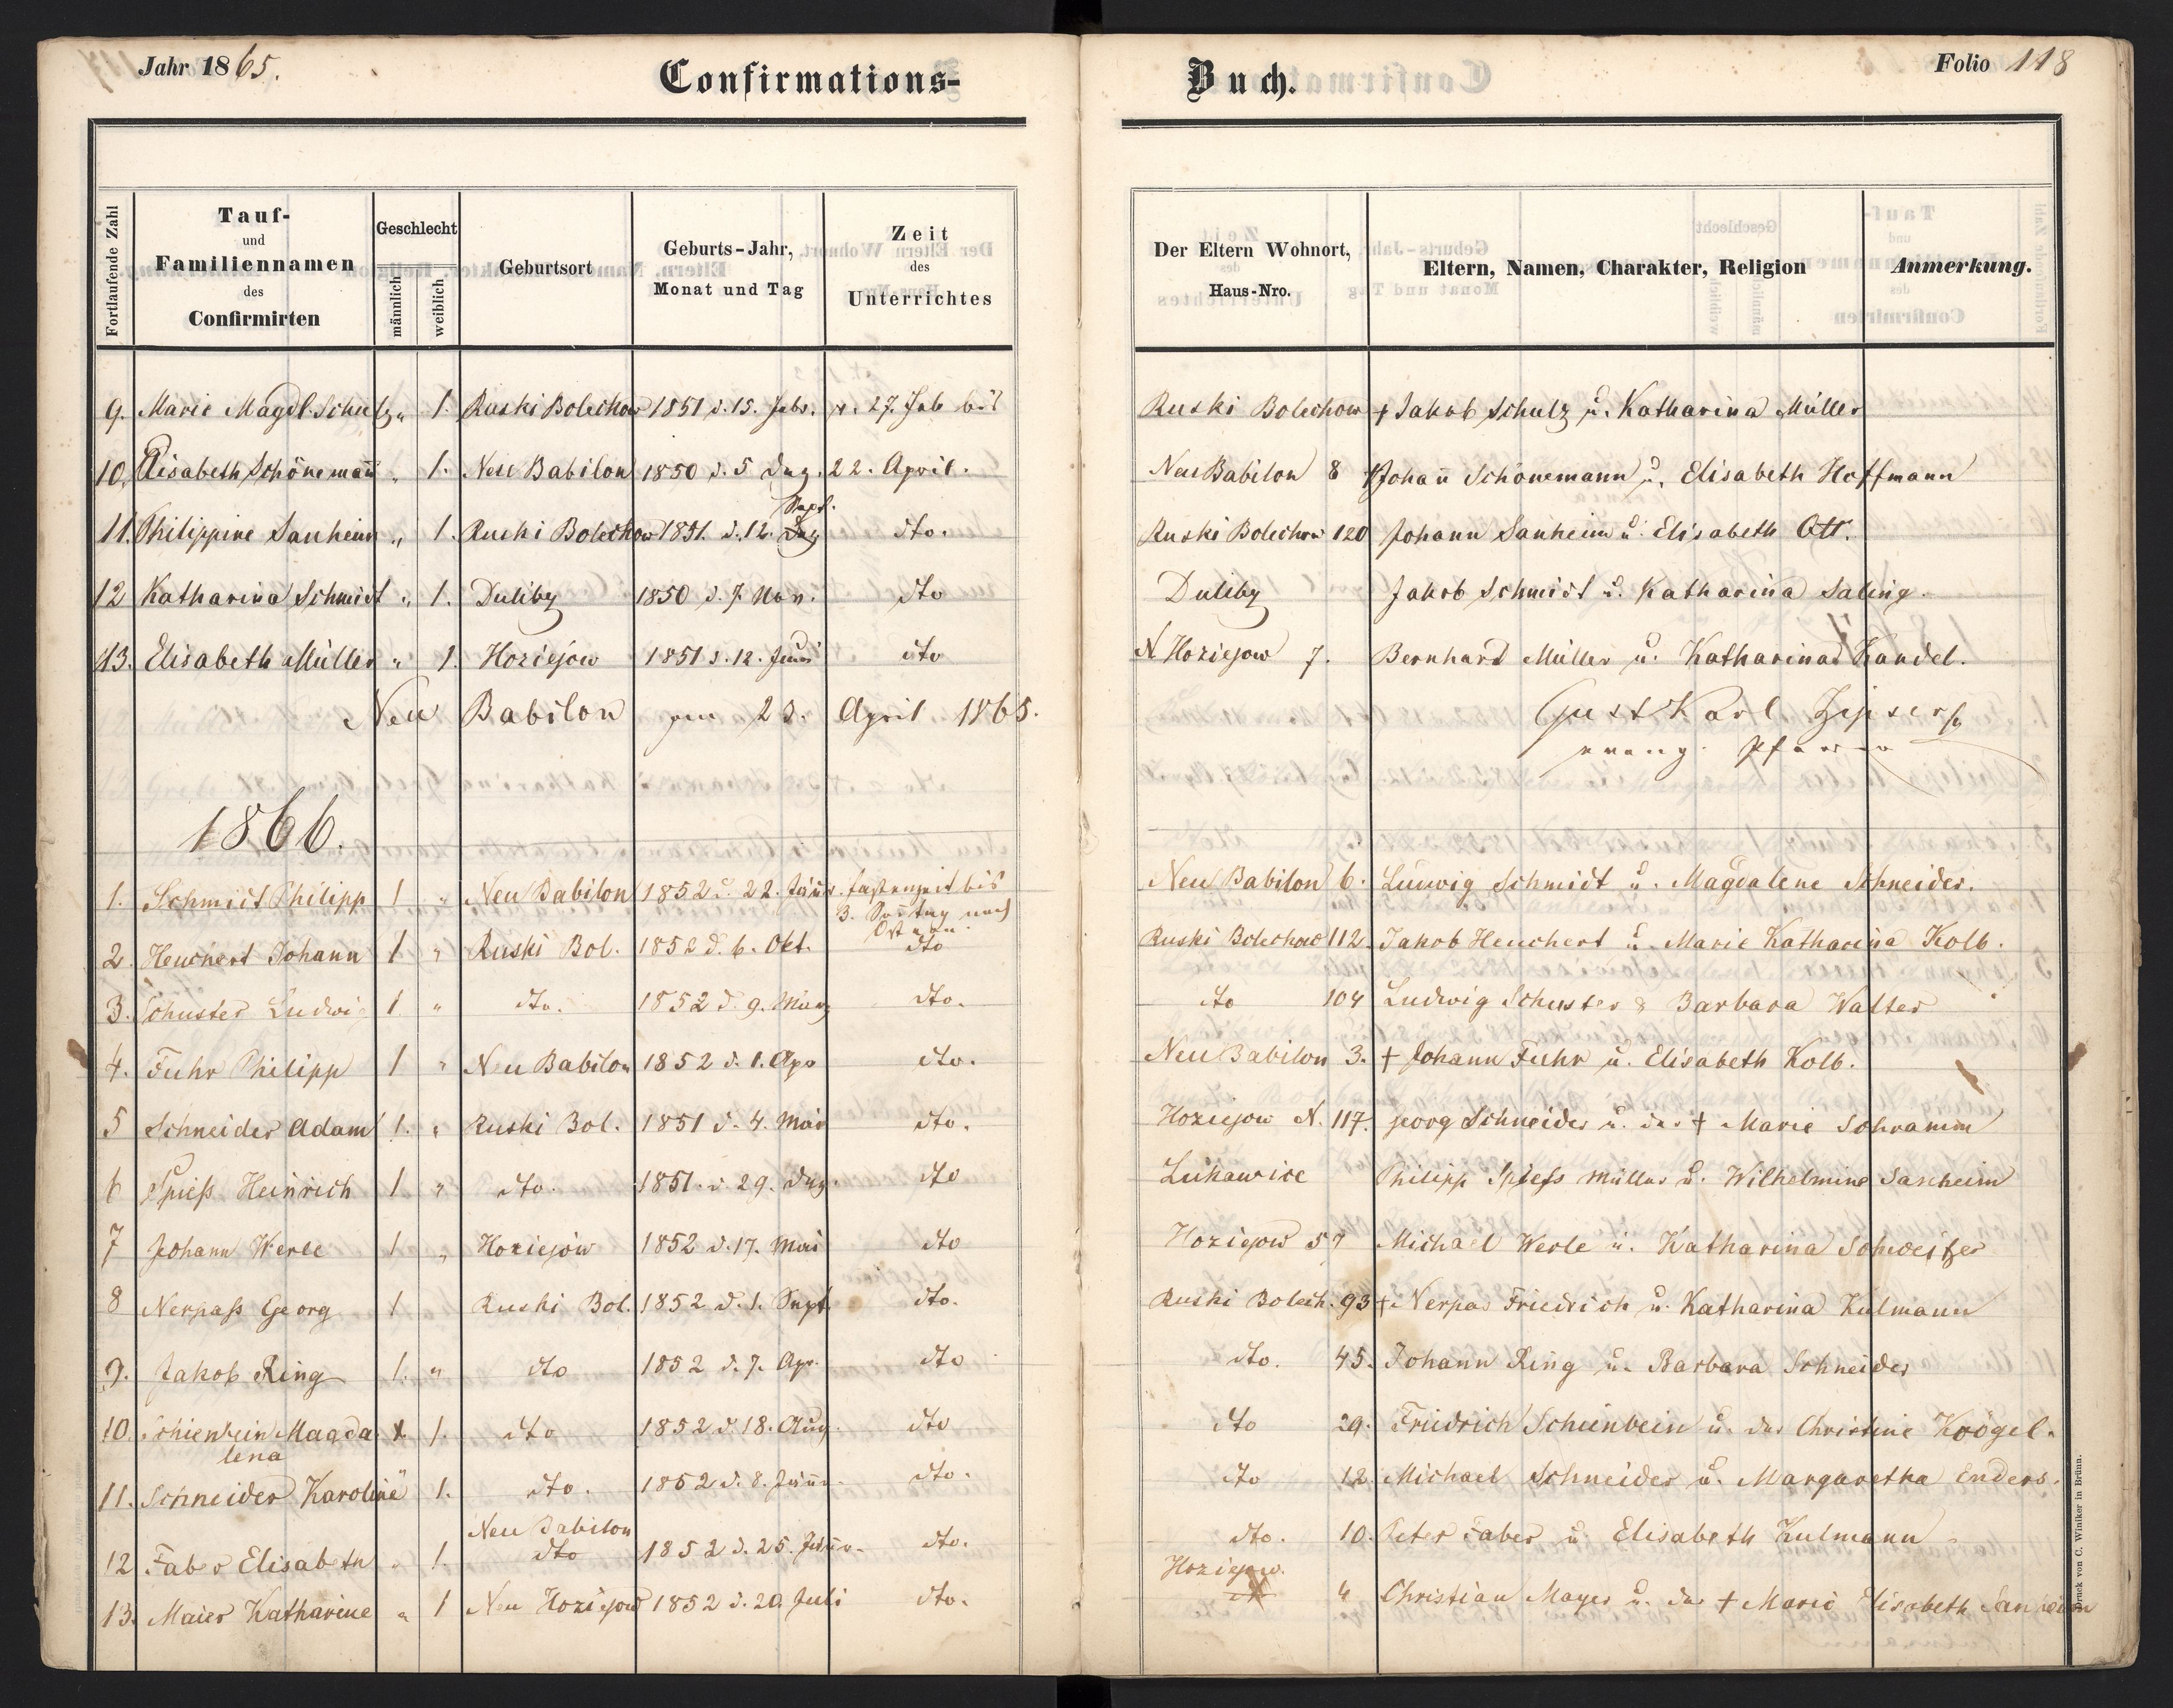 Jahr 1865.
Confirmations-
Buch.
Folio 118
Fortlaufende Zahl
Tauf-
und
Familiennamen
des
Confirmirten
Geschlecht
männlich
weiblich
Geburtsort
Geburts-Jahr,
Monat und Tag
Zeit
des
Unterrichtes
Der Eltern Wohnort,
Haus-Nro.
Eltern, Namen, Charakter, Religion
Anmerkung.
9. Marie Magdl. Schulz „ 1. Ruski Bolechow 1851 d. 15. Febr. v. 27. Feb bis Ruski Bolechow † Jakob Schulz u. Katharina Müller
10. Elisabeth Schönemañ „ 1. Neu Babilon 1850 d. 5 Dez. 22. April. Neu Babilon 8 Johañ Schönemann u. Elisabeth Hoffmann
Sept.
11. Philippine Sanheim „ 1. Ruski Bolechow 1851. d. 12. Dez dto. Ruski Bolechow 120 Johann Sanheim u. Elisabeth Ott.
12 Katharina Schmidt „ 1. Duliby 1850 d. 7. Nov. dto Duliby Jakob Schmidt u. Katharina Saling.
13. Elisabeth Müller „ 1. Hoziejow 1851 d. 12. Juni dto N Hoziejow 7. Bernhard Müller u. Katharina Kandel.
Neu Babilon am 23. April 1865. Gust Karl Zipser
evang. Pfarrer
1866.
1. Schmidt Philipp 1 „ Neu Babilon 1852 d. 22. Jäñr. Fastenzeit bis Neu Babilon 6. Ludwig Schmidt u. Magdalene Schneider.
3. Soñtag nach
Ostern.
2. Heuchert Johann 1 „ Ruski Bol. 1852 d. 6. Okt. dto Ruski Bolechow 112. Jakob Heuchert u. Marie Katharina Kolb.
3. Schuster Ludwig 1 „ dto. 1852 d. 9. März dto. dto 104 Ludwig Schuster & Barbara Walter
4. Fuhr Philipp 1 „ Neu Babilon 1852 d. 1. Apr dto. Neu Babilon 3. † Johann Fuhr u. Elisabeth Kolb.
5 Schneider Adam 1. „ Ruski Bol. 1851 d. 4. Mai dto. Hoziejow N. 117. Georg Schneider u. der † Marie Schramm
6 Spieß Heinrich 1 „ dto. 1851. d. 29. Dez. dto Lukawice Philipp Spieß Müller u. Wilhelmine Sanheim
7 Johann Werle 1 „ Hoziejow 1852 d. 17. Mai dto Hoziejow 57 Michael Werle u. Katharina Schweitzer
8 Nerpaß Georg 1 Ruski Bol. 1852 d. 1. Sept. dto. Ruski Bolech. 93 † Nerpas Friedrich u. Katharina Kulmann
9. Jakob Ring 1. „ dto 1852 d. 7. Apr. dto dto. 45. Johann Ring u. Barbara Schneider
10. Schienbein Magda 1. dto 1852 d. 18. Aug. dto dto 29. Friedrich Scheinbein u. der Christine Krögel.
lena
11. Schneider Karoline 1. dto. 1852 d. 8. Jäñr. dto. dto 12. Michael Schneider u. Margaretha Enders.
Neu Babilon
12 Faber Elisabeth „ 1. dto 1852 d. 25. dto. dto. 10. Peter Faber u. Elisabeth Kulmann
Hoziejow.
13. Maier Katharine „ 1 Neu Hoziejow 1852 d. 20. Juli dto. 4 Christian Mayer u. der † Marie Elisabeth Sanheim
Druck von C. Winiker in Brünn.